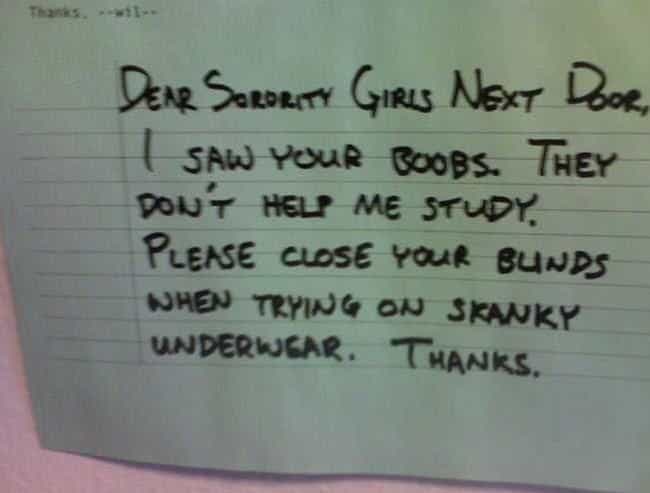 Thanks. --wil--
DEAR SORORITY GIRLS NEXT DOOR,
I SAW YOUR BOOBS. THEY
DON'T HELP ME STUDY.
PLEASE CLOSE YOUR BLINDS
WHEN TRYING ON SKANKY
UNDERWEAR. THANKS.